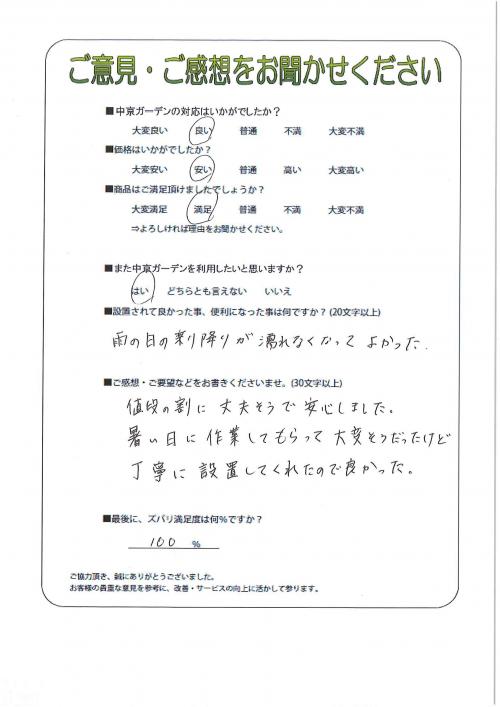 ご意見・ご感想をお聞かせください
■中京ガーデンの対応はいかがでしたか？
大変良い 良い 普通 不満 大変不満
■価格はいかがでしたか？
大変安い 安い 普通 高い 大変高い
■商品はご満足頂けましたでしょうか？
大変満足 満足 普通 不満 大変不満
⇒よろしければ理由をお聞かせください。
■また中京ガーデンを利用したいと思いますか？
はい どちらとも言えない いいえ
■設置されて良かった事、便利になった事は何ですか？(20文字以上)
雨の日の乗り降りが濡れなくなってよかった.
■ご感想・ご要望などをお書きくださいませ。(30文字以上)
値段の割に丈夫そうで安心しました。
暑い日に作業してもらって大変そうだったけど
丁寧に設置してくれたので良かった。
■最後に、ズバリ満足度は何％ですか？
100 %
ご協力頂き、誠にありがとうございました。
お客様の貴重な意見を参考に、改善・サービスの向上に活かして参ります。